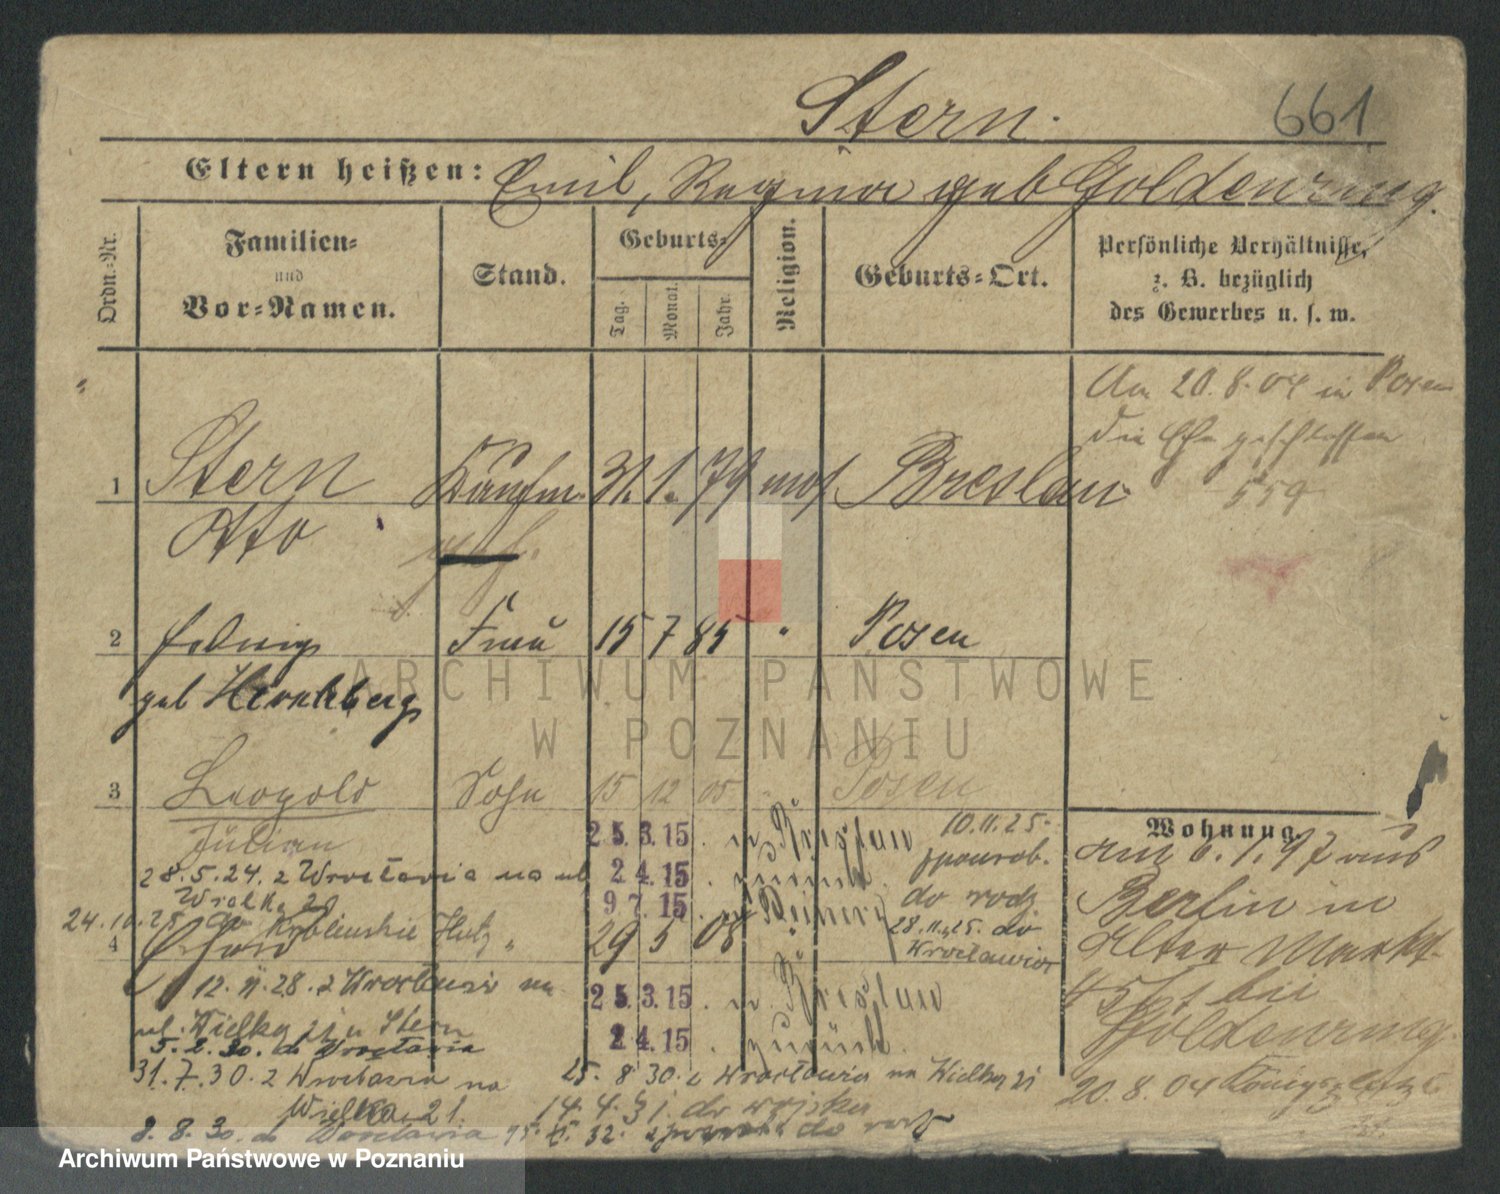 Stern. 661
Eltern heißen: Emil, Regina geb Goldenring.
Ordn.=Nr.
Familien= und Vor=Namen.
Stand.
Geburts=
Tag. Monat. Jahr.
Religion.
Geburts=Ort.
Persönliche Verhältnisse, z. B. bezüglich des Gewerbes u. s. w.
Am 20.8.04 in Posen
die Ehe geschlossen
559
1 Stern Kaufm. 31. 1. 79 mos. Breslau
Otto
2 Hedwig Frau 15 7 85 " Posen
geb Hirschberg
3 Leopold Sohn 15 12 05 Posen
Julian
25.3.15 . n Breslau
10.11.25
28.5.24. z Wrocławia na ul
2 4.15 . zurück.
Wielka 21
9 7.15 . n
do rodz
24.10.25 do
28.11.25. do
Wrocławia
4 29 5 08
12.11.28. z Wrocławia na
25.3.15 . n Breslau
ul. Wielka 21 u Stern
2 4.15 . zurück.
5.2.30. do Wrocławia
31.7.30. z Wrocławia na
Wielka 21.
8.8.30. do Wrocławia
25.8.30. z Wrocławia na Wielką 21
14.4.31. do wojska
32. do rodz
Wohnung.
am 6.1.97 aus
Berlin in
Alter Markt
45/1 bei
Goldenring.
20.8.04 Königsplatz 6
ARCHIWUM PAŃSTWOWE
W POZNANIU
Archiwum Państwowe w Poznaniu